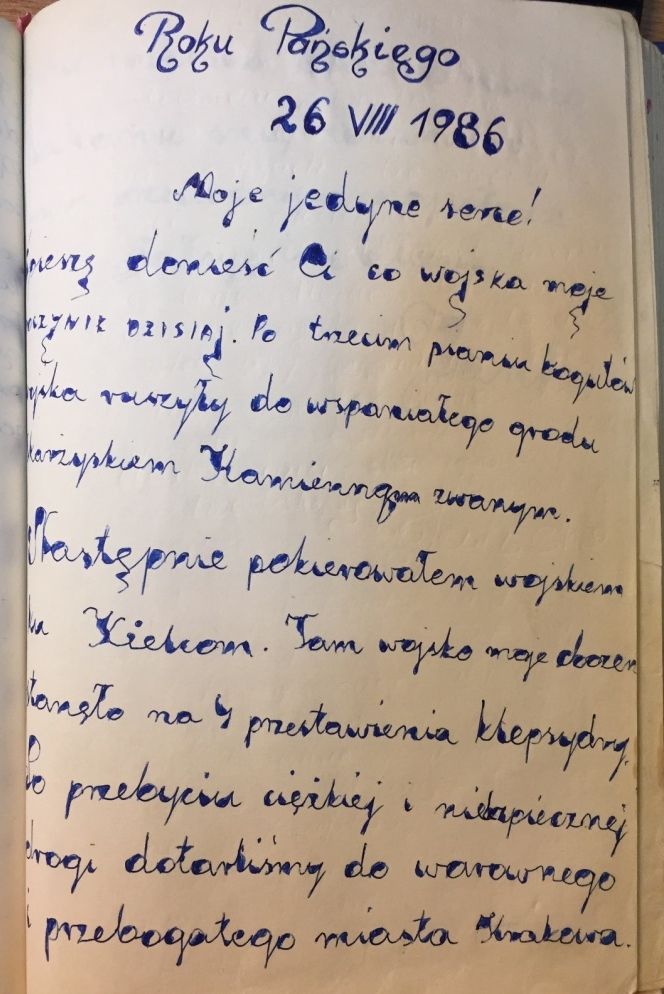 Roku Pańskięgo
26 VIII 1986
Moje jedyne serce!
śpieszę donieść Ci co wojska moje
uczyniŁ DZISIAJ. Po trzecim pianiu kogutów
wojska ruszyły do wspaniałego grodu
Skarżyskiem Kamiennąm zwanym.
Następnie pokierowałem wojskiem
ku Kielcom. Tam wojsko moje obozem
stanęło na 4 przestawienia klepsydry.
Po przebyciu ciężkiej i niebezpiecznej
drogi dotarliśmy do warownego
i przebogatego miasta Krakowa.